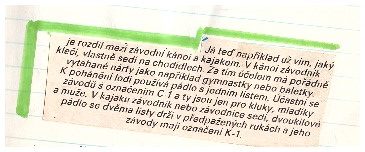 Já teď například už vím, jaký
je rozdíl mezi závodní kánoí a kajakem. V kánoi závodník
klečí, vlastně sedí na chodidlech. Za tím účelem má pořádně
vytahané nárty jako například gymnastky nebo baletky.
K pohánění lodi používá pádlo s jedním listem. Účastní se
závodů s označením C 1 a ty jsou jen pro kluky, mladíky
a muže. V kajaku závodník nebo závodnice sedí, dvoukilové
pádlo se dvěma listy drží v předpažených rukách a jeho
závody mají označení K-1.